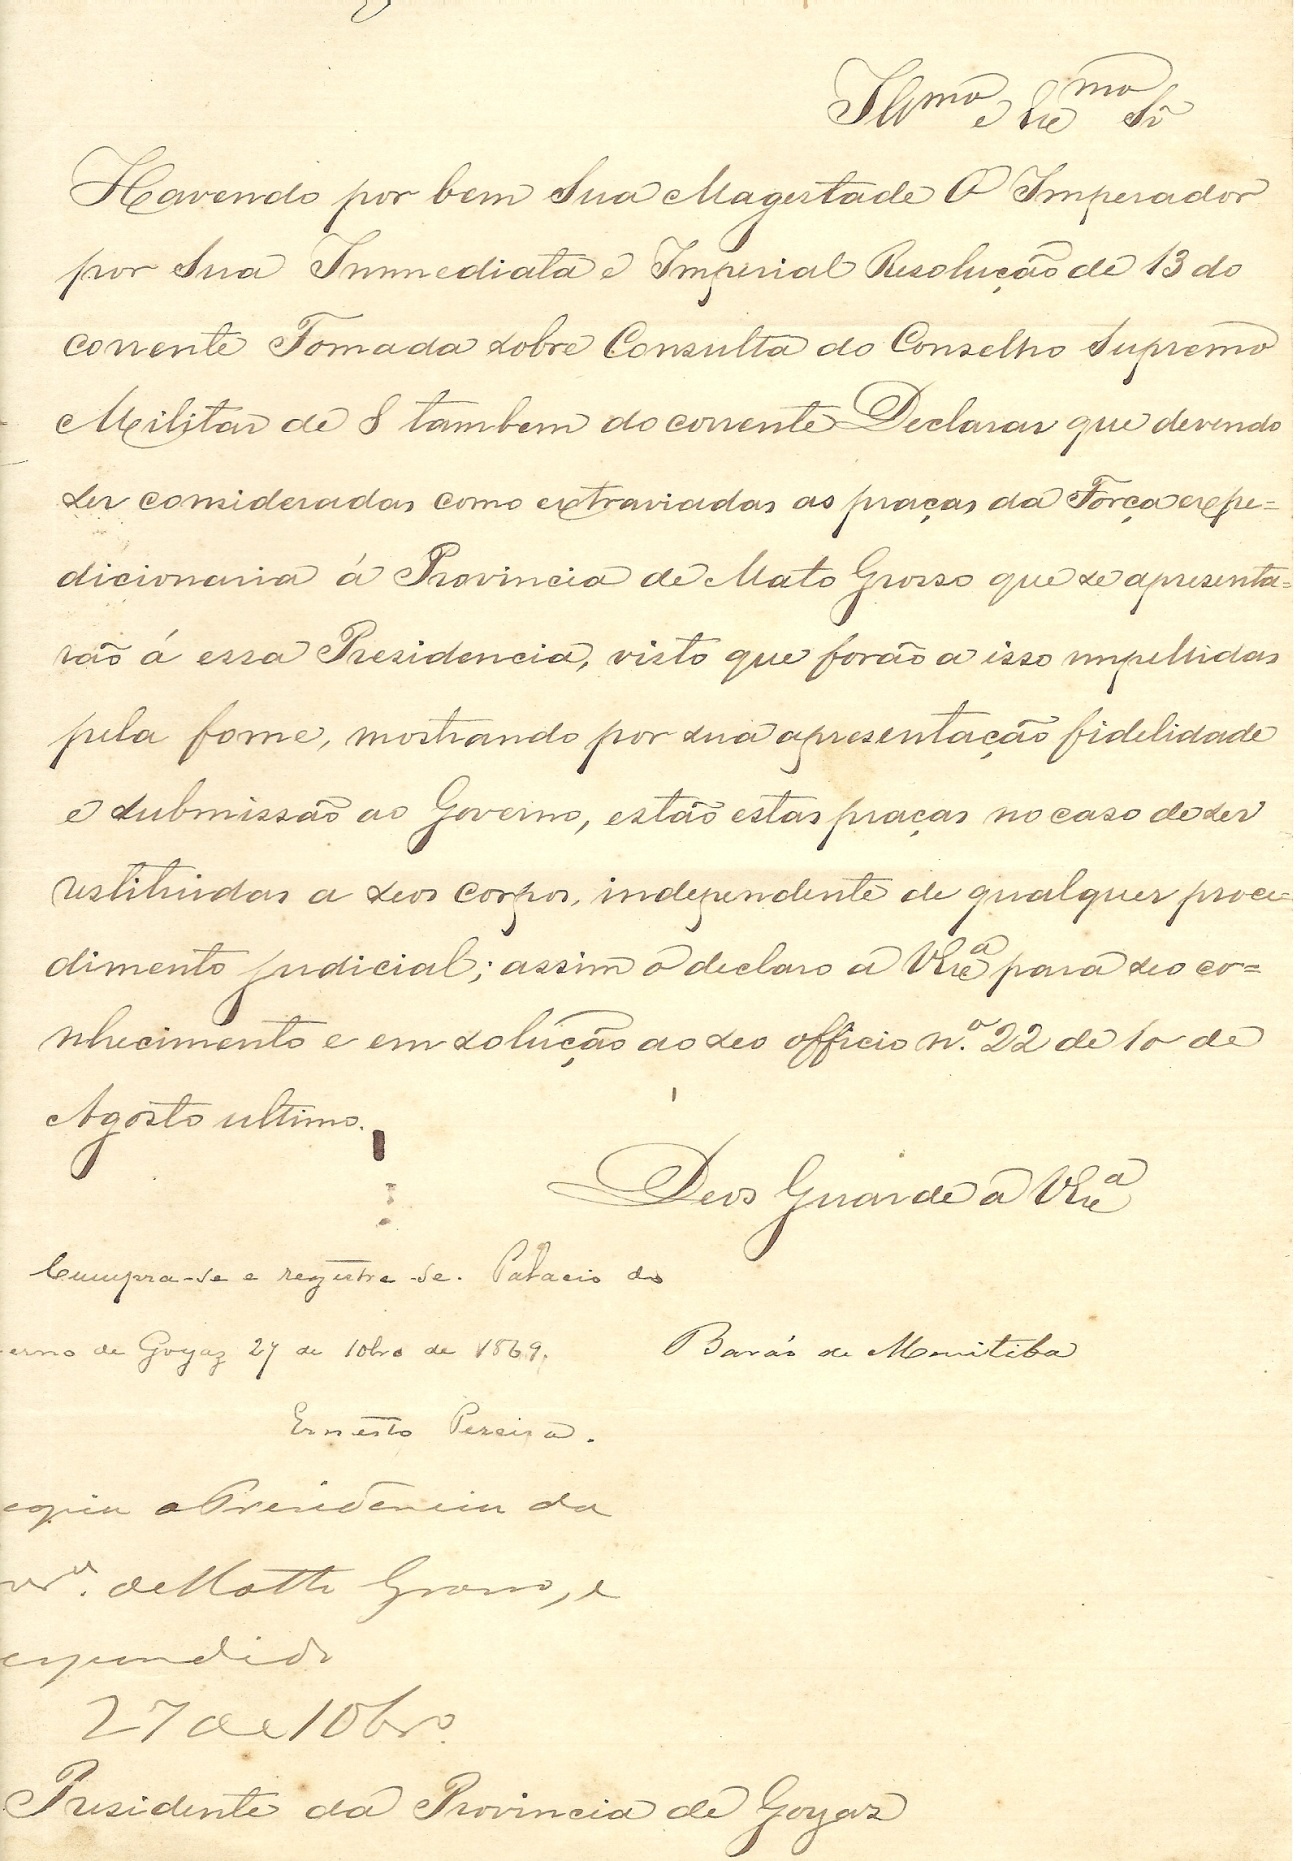 Illmo e Exmo Sr
Havendo por bem Sua Magestade O Imperador
por Sua Immediata e Imperial Resolução de 13 do
corrente Tomada sobre Consulta do Conselho Supremo
Militar de 8 tambem do corrente Declarar que devendo
ser consideradas como extraviadas as praças da Força expe=
dicionaria á Provincia de Mato Grosso que se apresenta=
rão á essa Presidencia, visto que forão a isso impellidas
pela fome, mostrando por sua apresentação fidelidade
e submissão ao Governo, estão estas praças no caso de ser
restituidas a seos corpos, independente de qualquer proce=
dimento judicial; assim o declaro a VExa para seo co=
nhecimento e em solução ao seo officio n.o 22 de 10 de
Agosto ultimo.
Deos Guarde a VExa
Cumpra-se e registre-se. Palacio do
erno de Goyaz 27 de 10bro de 1869.
Barão de Muritiba
Ernesto Pereira.
copia a Presidencia da
de Matto Grosso, e
espondido
27 de 10bro.
Presidente da Provincia de Goyaz